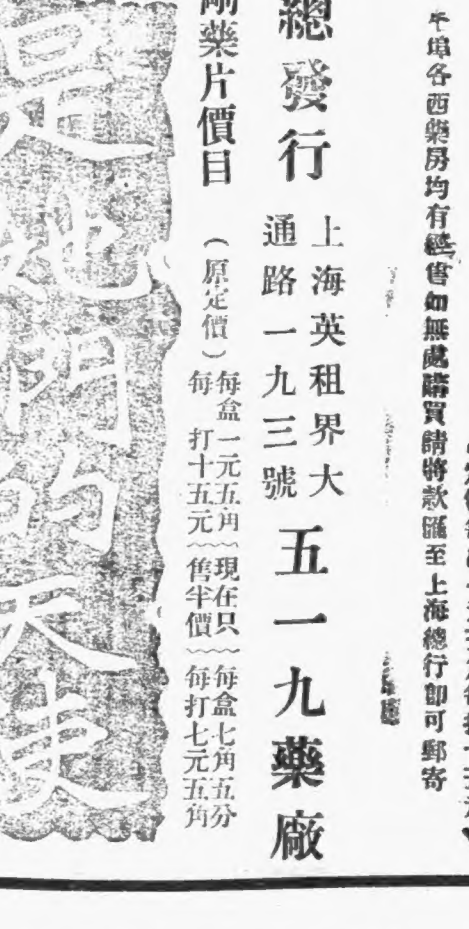 本埠各西藥房均有經售如無處購買請將款匯至上海總行卽可郵寄
總發行
上海英租界大
通路一九三號
五一九藥廠
藥片價目
(原定價)
每盒一元五角
每打十五元
現在只
售半價
每盒七角五分
每打七元五角
是她們的天使